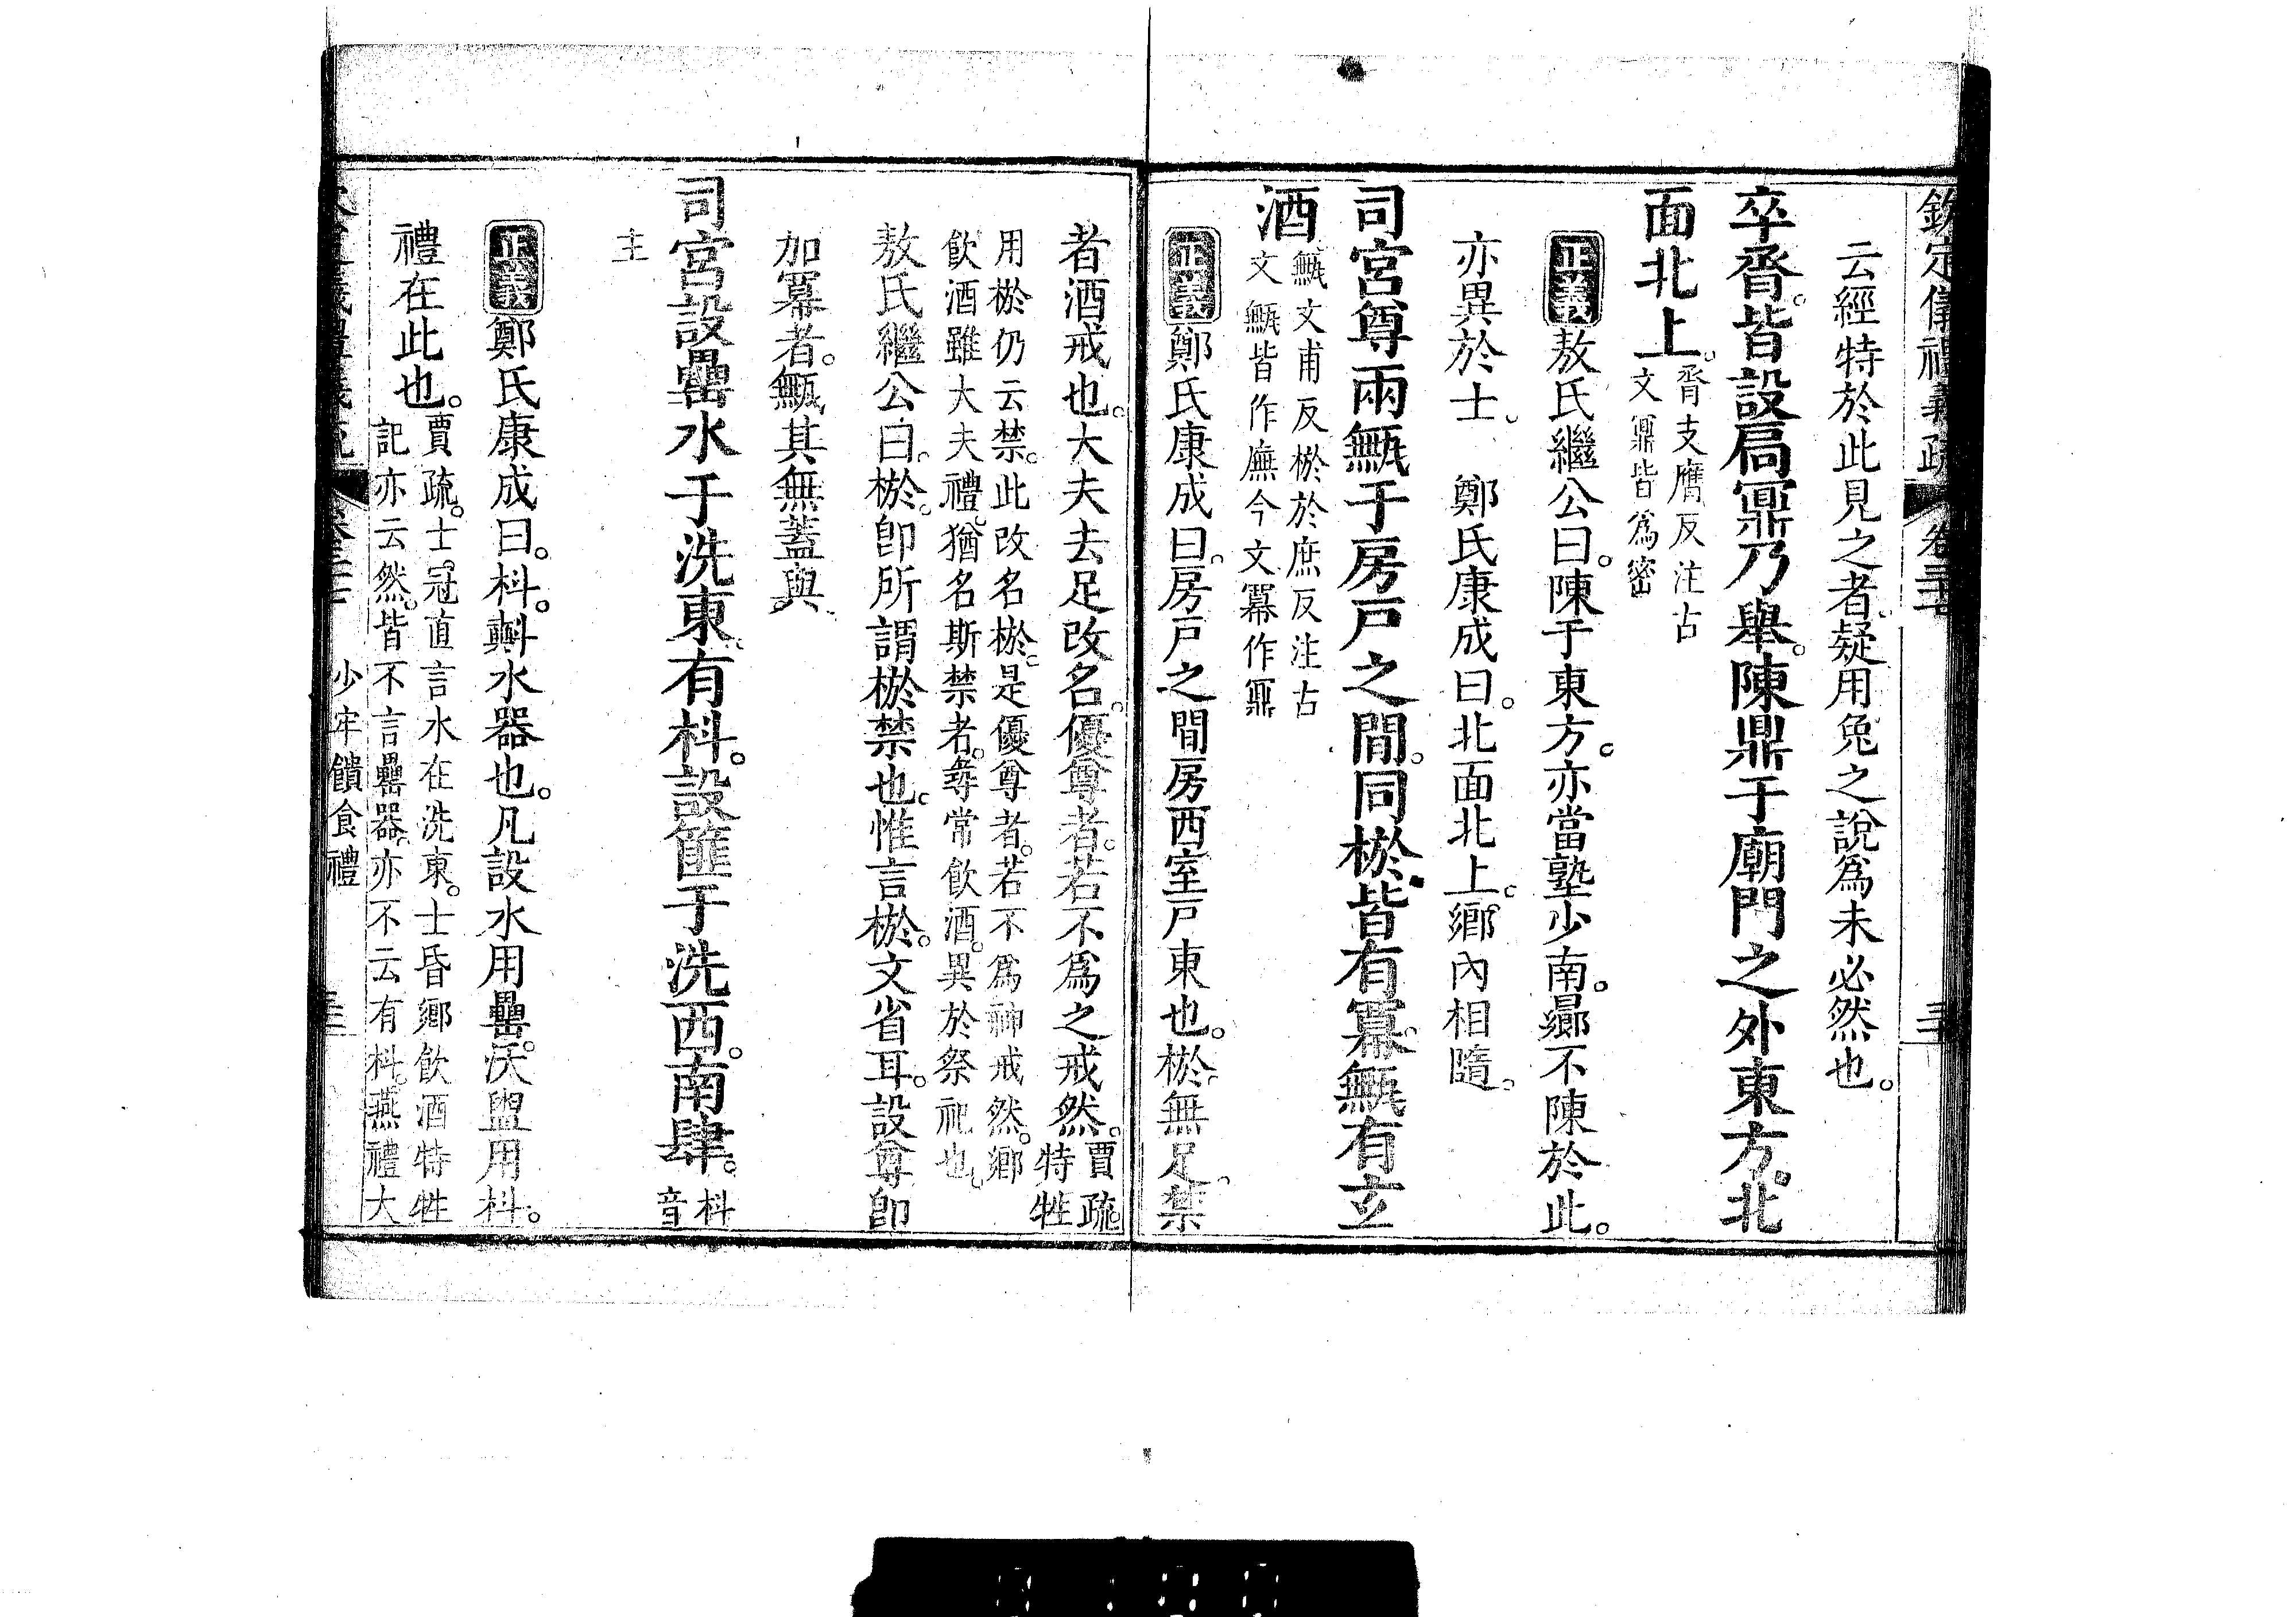 欽定儀禮義疏 卷三十七 三十二
云經特於此見之者疑用兔之說爲未必然也。
卒脀。皆設扃鼏乃舉。陳鼎于廟門之外東方。北
面北上。
脀支膺反注古
文鼏皆爲密
正義敖氏繼公曰。陳于東方。亦當塾少南。曏不陳於此。
亦異於士。 鄭氏康成曰。北面北上。鄉內相隨。
司宮尊兩甒于房戶之閒。同棜。皆有冪。甒有玄
酒
甒文甫反棜於庶反注古
文甒皆作廡今文冪作鼏
正義鄭氏康成曰。房戶之閒房西室戶東也。棜。無足。禁
者酒戒也。大夫去足改名。優尊者。若不爲之戒然。
賈疏。
特牲
用棜仍云禁。此改名棜。是優尊者。若不爲神戒然。鄉
飲酒雖大夫禮。猶名斯禁者。尋常飲酒。異於祭祀也。
敖氏繼公曰。棜。卽所謂棜禁也。惟言棜。文省耳。設尊卽
加冪者。甒其無蓋與。
司宮設罍水于洗東。有枓。設篚于洗西。南肆。
枓
音
主
正義鄭氏康成曰。枓。㪺水器也。凡設水用罍。沃盥用枓。
禮在此也。
賈疏。士冠直言水在洗東。士昏鄉飲酒特牲
記亦云然。皆不言罍器。亦不云有枓。燕禮大
少牢饋食禮